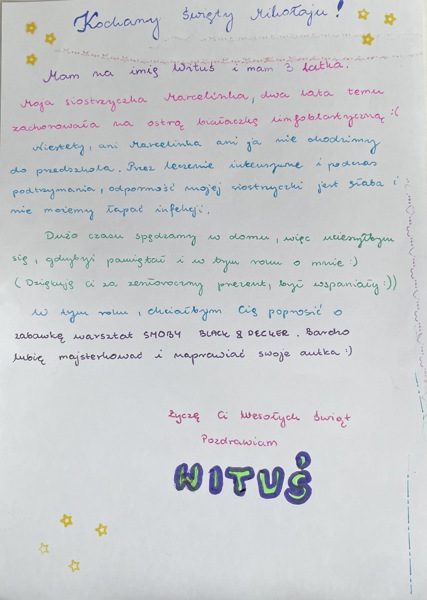 Kochany Święty Mikołaju!
Mam na imię Wituś i mam 3 latka.
Moja siostrzyczka Marcelinka, dwa lata temu
zachorowała na ostrą białaczkę limfoblastyczną :(
Niestety, ani Marcelinka ani ja nie chodzimy
do przedszkola. Przez leczenie intensywne i podczas
podtrzymania, odporność mojej siostrzyczki jest słaba i
nie możemy łapać infekcji.
Dużo czasu spędzamy w domu, więc ucieszyłbym
się, gdybyś pamiętał i w tym roku o mnie :)
(Dziękuję Ci za zeszłoroczny prezent, był wspaniały :))
W tym roku, chciałbym Cię poprosić o
zabawkę warsztat SMOBY BLACK & DECKER. Bardzo
lubię majsterkować i naprawiać swoje autka :)
Życzę Ci Wesołych Świąt
Pozdrawiam
WITUŚ